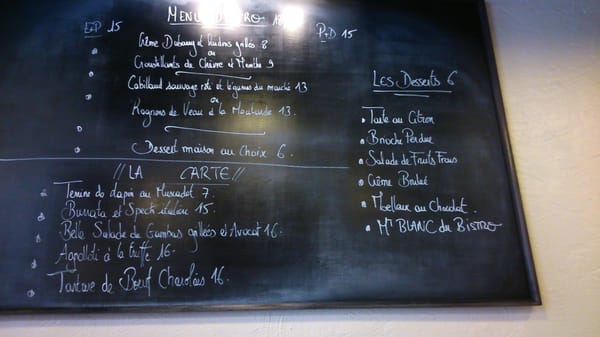 E+P 15
MENU BISTRO 18
P+D 15
Crème Dubarry et lardons grillés 8
ou
Croustillants de Chèvre et Menthe 9
Cabillaud sauvage roti et légumes du marché 13
ou
Rognons de Veau à la Moutarde 13.
Dessert maison au Choix 6.
// LA CARTE //
Terrine de Lapin au Muscadet 7.
Burrata et Speck italien 15.
Belle Salade de Gambas grillées et Avocat 16.
Agnolotti à la truffe 16.
Tartare de Boeuf Charolais 16.
Les Desserts 6
Tarte au Citron
Brioche Perdue
Salade de Fruits Frais
Crème Brulée
Moelleux au Chocolat
Mt BLANC du BISTRO